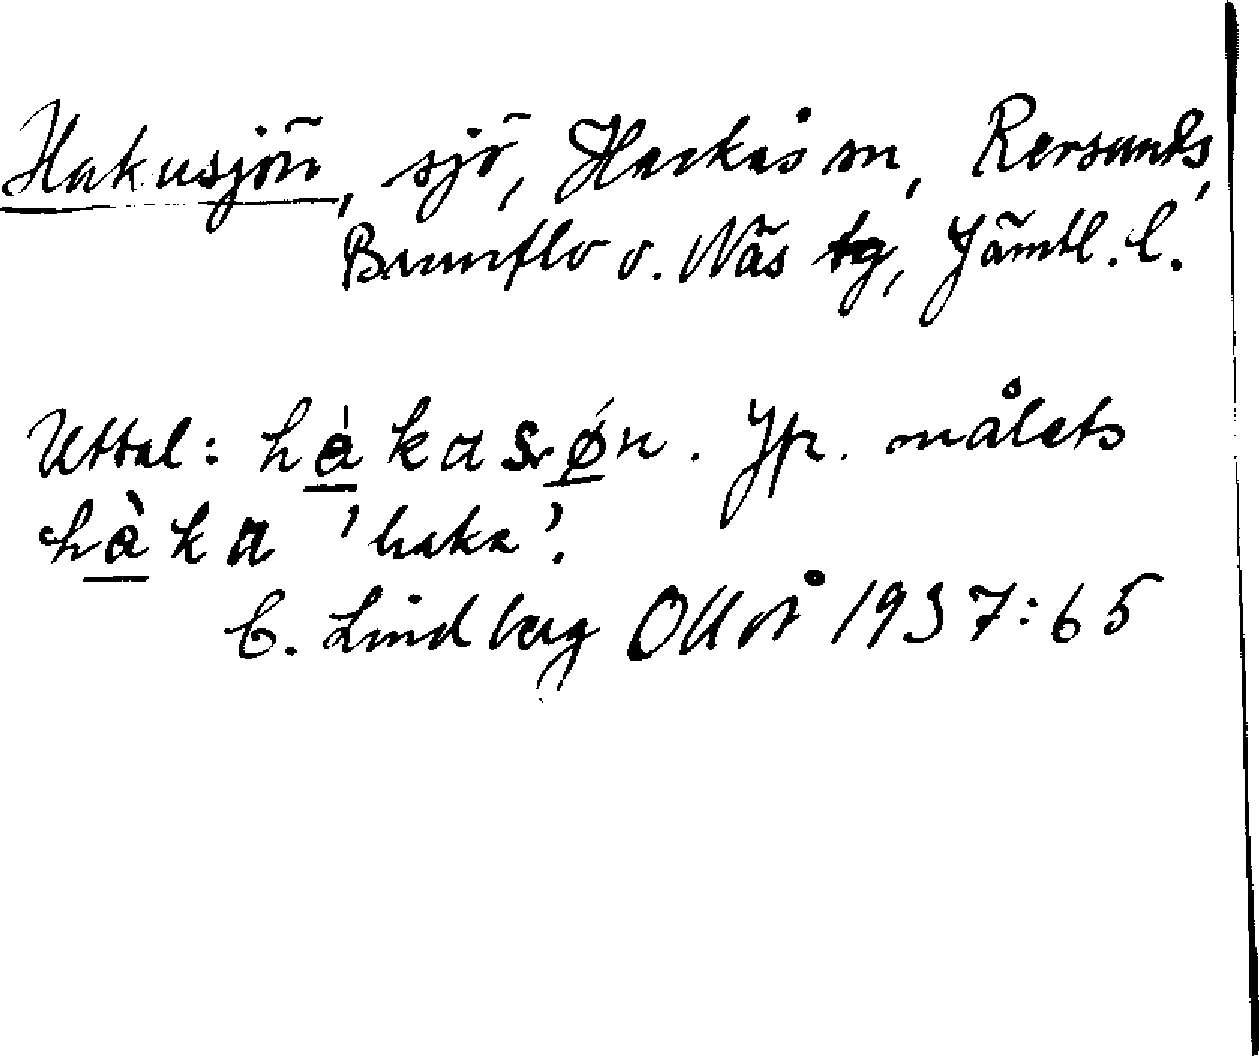 Hakusjön, sjö, Hackås sn, Revsunds,
Brunflo o. Näs tg, Jämtl. l.
Uttal: hàkasøn. Jfr. målets
hàka 'haka'.
C. Lindberg OUOÅ 1937:65